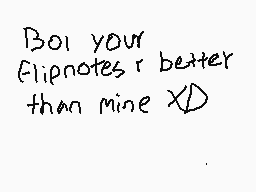 Boi your
flipnotes r better
than mine XD